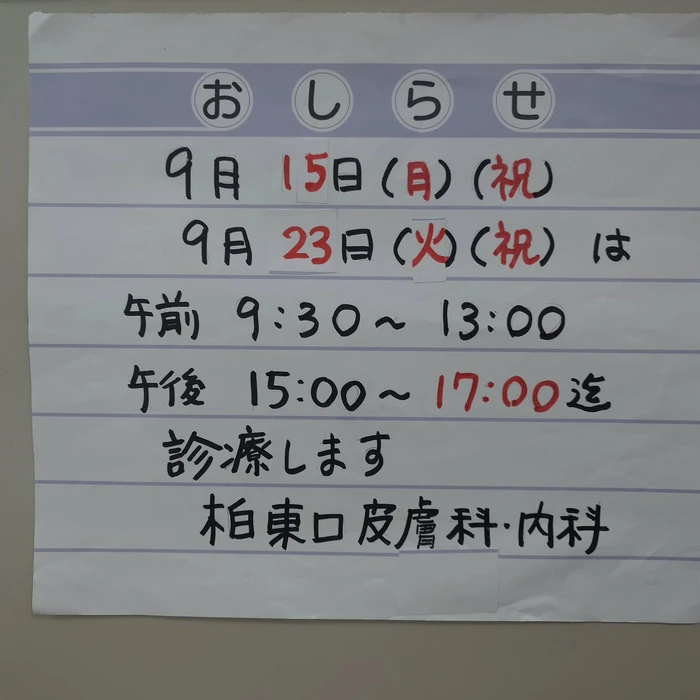 おしらせ
9月 15日(月)(祝)
9月 23日(火)(祝) は
午前 9:30～ 13:00
午後 15:00～ 17:00迄
診療します
柏東口皮膚科・内科